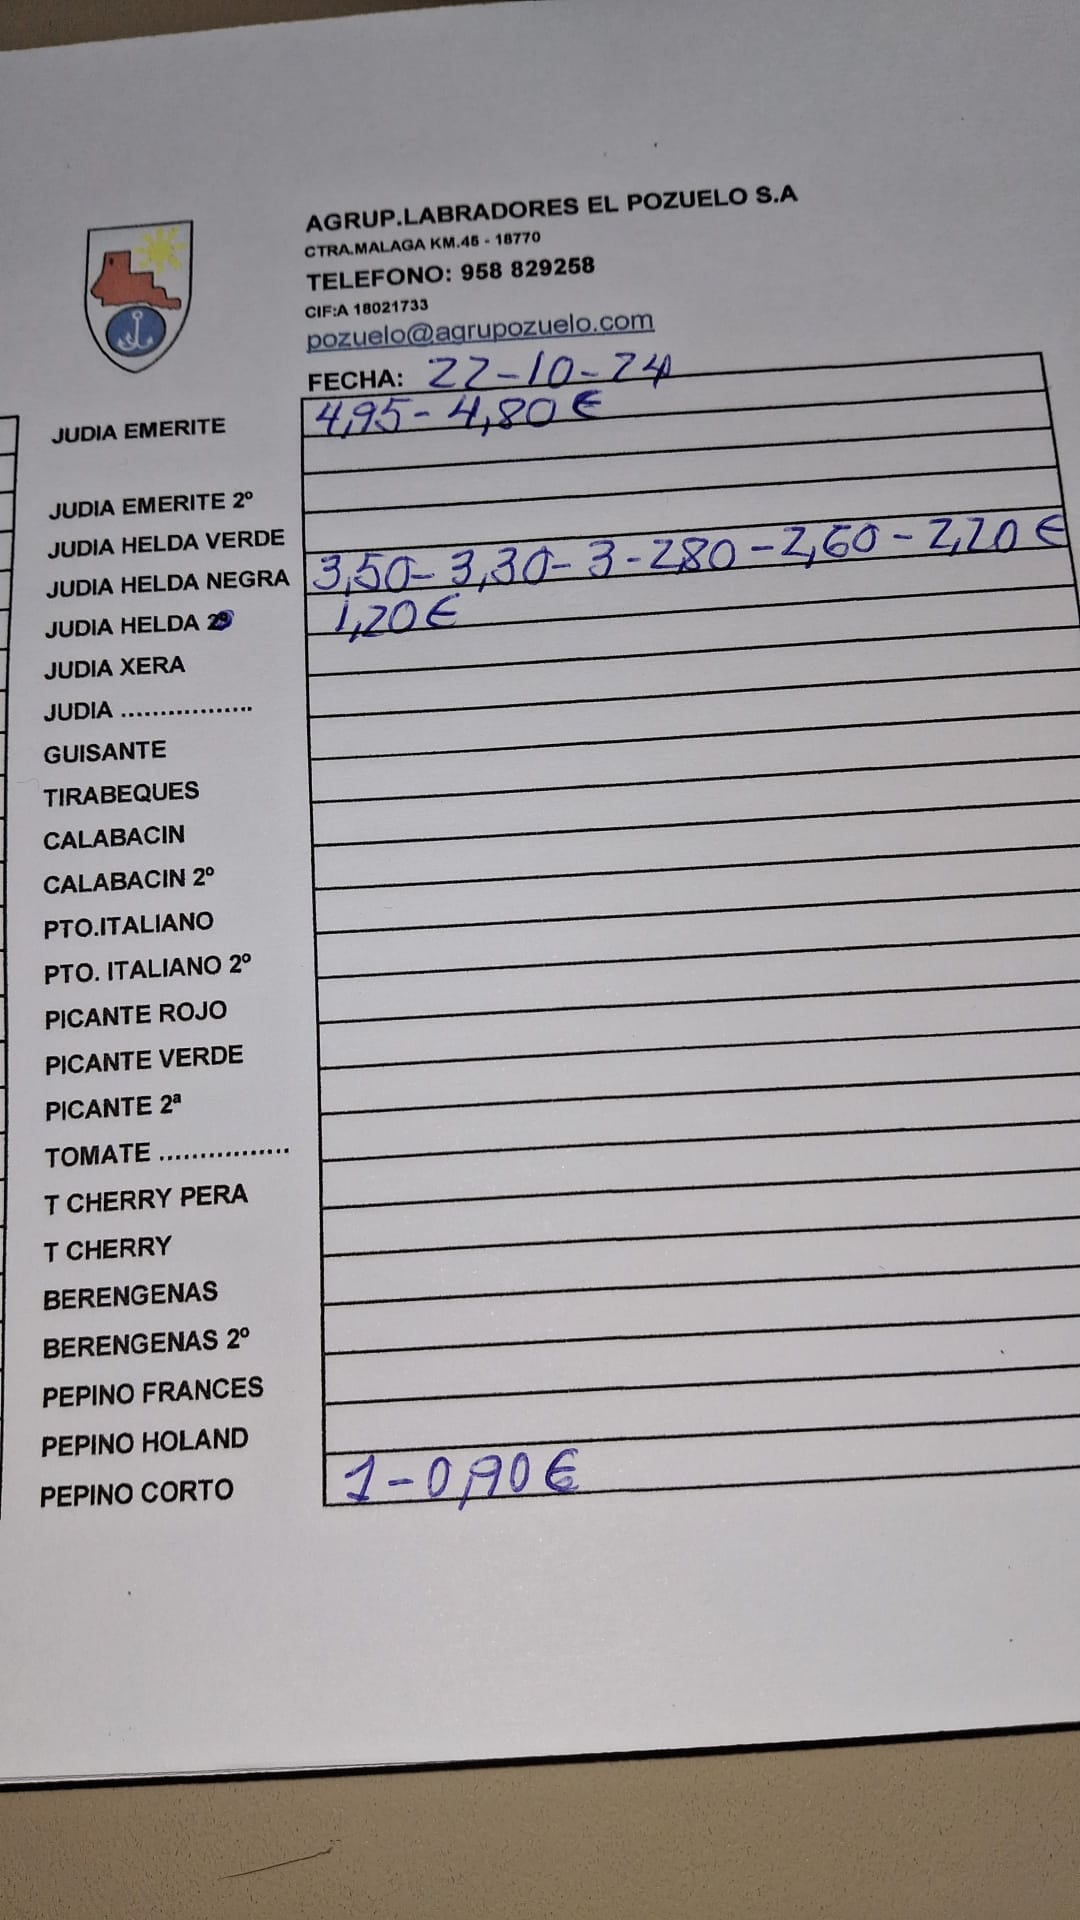 AGRUP.LABRADORES EL POZUELO S.A
CTRA.MALAGA KM.45 - 18770
TELEFONO: 958 829258
CIF:A 18021733
pozuelo@agrupozuelo.com
FECHA: 22-10-24
JUDIA EMERITE 4,95 - 4,80 €
JUDIA EMERITE 2º
JUDIA HELDA VERDE
JUDIA HELDA NEGRA 3,50 - 3,30 - 3 - 2,80 - 2,60 - 2,20 €
JUDIA HELDA 2º 1,20 €
JUDIA XERA
JUDIA .................
GUISANTE
TIRABEQUES
CALABACIN
CALABACIN 2º
PTO.ITALIANO
PTO. ITALIANO 2º
PICANTE ROJO
PICANTE VERDE
PICANTE 2ª
TOMATE ................
T CHERRY PERA
T CHERRY
BERENGENAS
BERENGENAS 2º
PEPINO FRANCES
PEPINO HOLAND
PEPINO CORTO 1 - 0,90 €